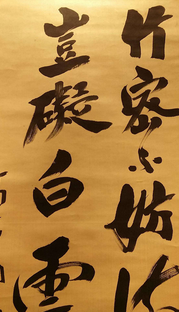 竹密不妨流
豈礙白雲